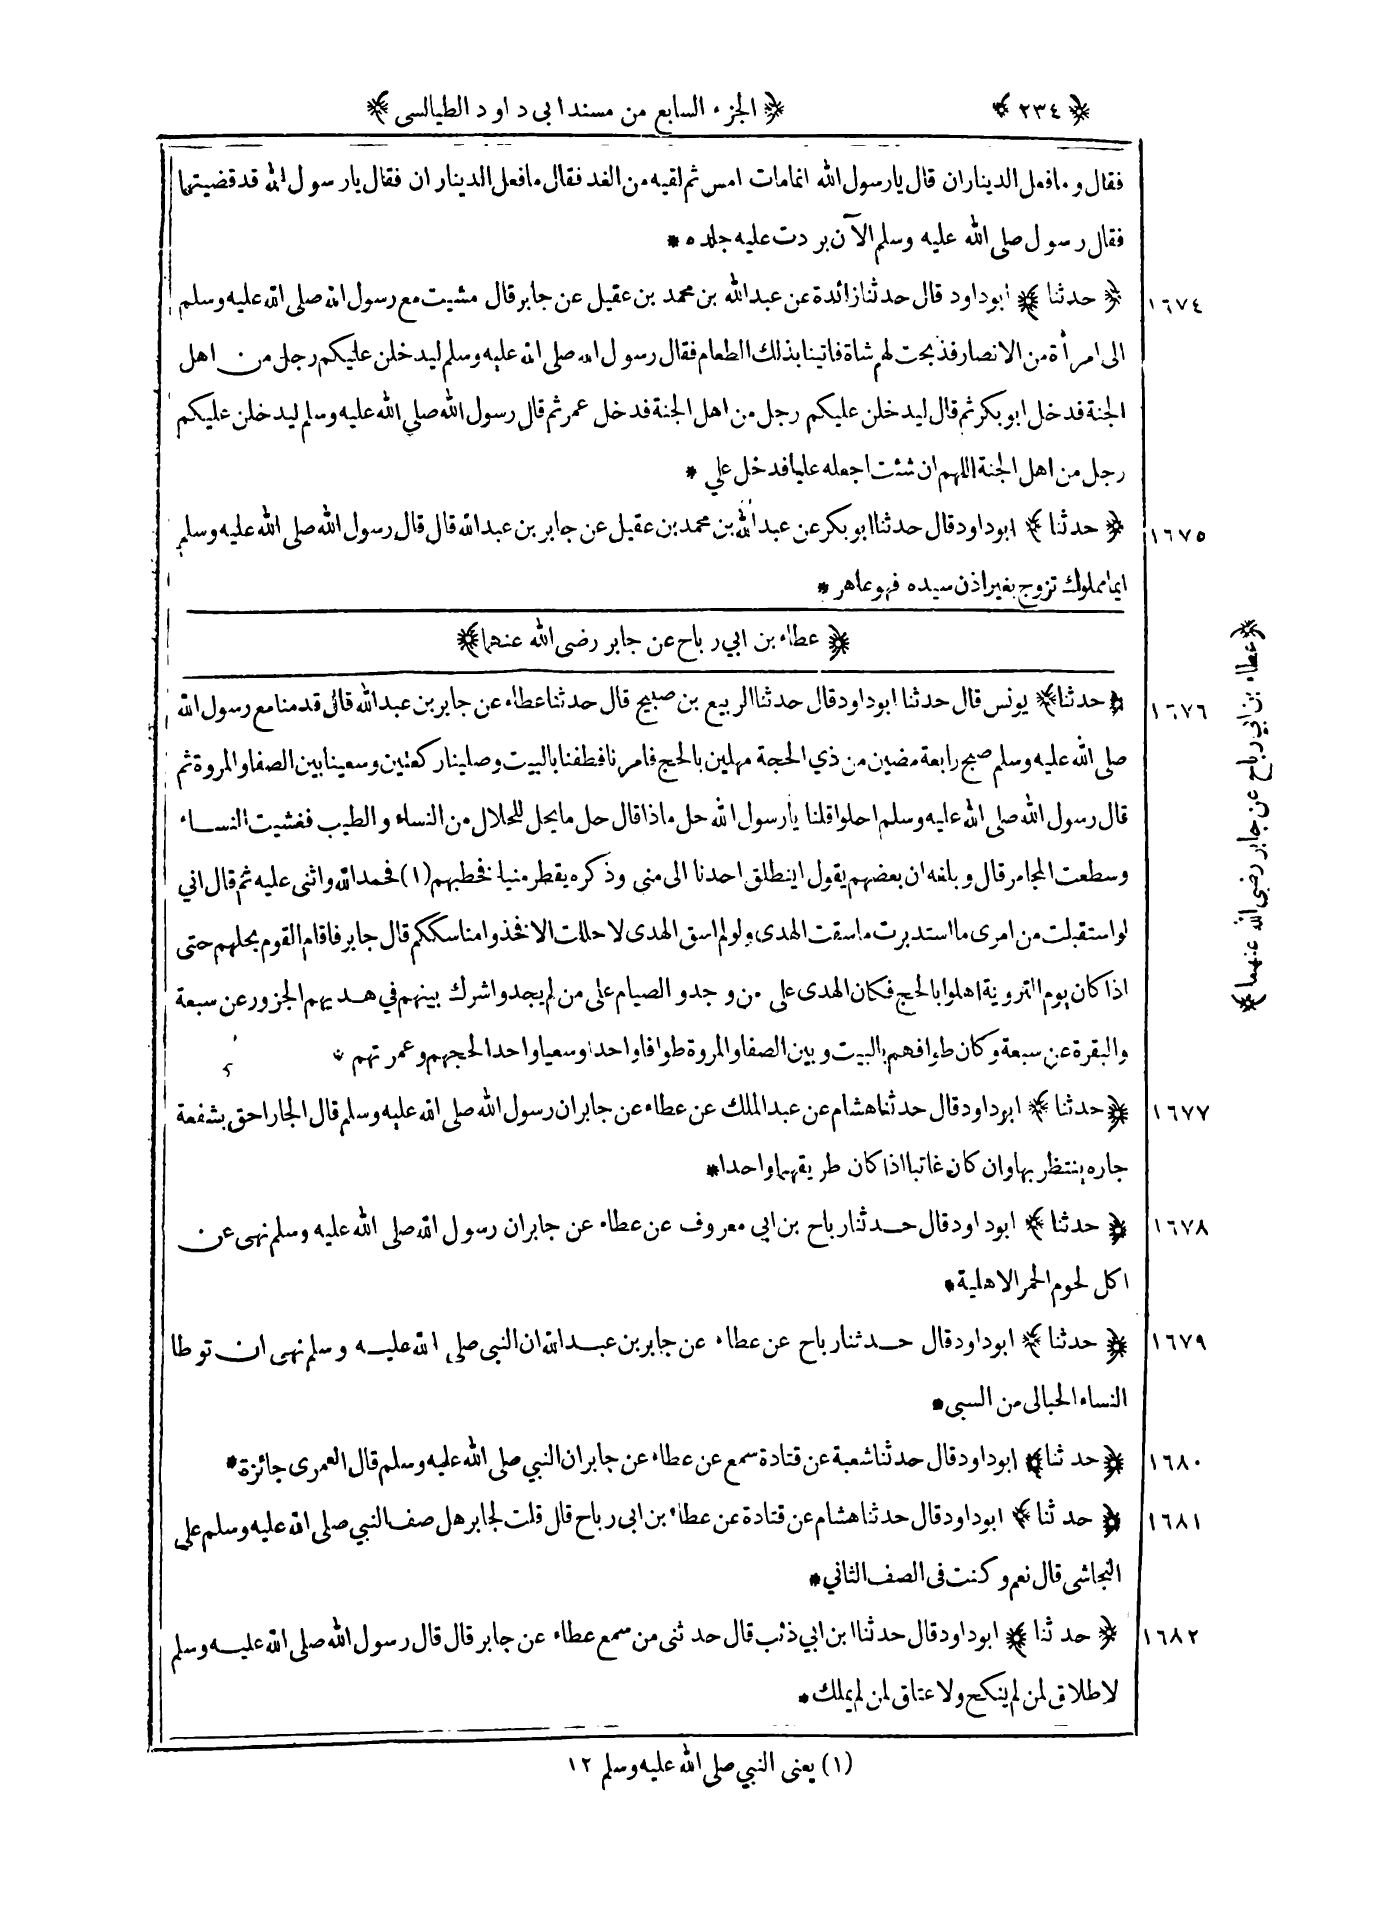 ﴿ ٢٣٤ ﴾ ﴿ الجزء السابع من مسند ابى داود الطيالسى ﴾
فقال وما فعل الديناران قال يا رسول الله انما مات امس ثم لقيه من الغد فقال ما فعل الديناران فقال يا رسول الله قد قضيتهما
فقال رسول صلى الله عليه وسلم الآن بردت عليه جلده *
١٦٧٤ ﴿ حدثنا ﴾ ابو داود قال حدثنا زائدة عن عبد الله بن محمد بن عقيل عن جابر قال مشيت مع رسول الله صلى الله عليه وسلم
الى امرأة من الانصار فذبحت لهم شاة فاتينا بذلك الطعام فقال رسول الله صلى الله عليه وسلم ليدخلن عليكم رجل من اهل
الجنة فدخل ابو بكر ثم قال ليدخلن عليكم رجل من اهل الجنة فدخل عمر ثم قال رسول الله صلى الله عليه وسلم ليدخلن عليكم
رجل من اهل الجنة اللهم ان شئت اجعله عليا فدخل علي *
١٦٧٥ ﴿ حدثنا ﴾ ابو داود قال حدثنا ابو بكر عن عبد الله بن محمد بن عقيل عن جابر بن عبد الله قال قال رسول الله صلى الله عليه وسلم
ايما مملوك تزوج بغير اذن سيده فهو عاهر *
﴿ عطاء بن ابي رباح عن جابر رضى الله عنهما ﴾
﴿ عطاء بن ابي رباح عن جابر رضى الله عنهما ﴾
١٦٧٦ ﴿ حدثنا ﴾ يونس قال حدثنا ابو داود قال حدثنا الربيع بن صبيح قال حدثنا عطاء عن جابر بن عبد الله قال قدمنا مع رسول الله
صلى الله عليه وسلم صبح رابعة مضين من ذي الحجة مهلين بالحج فامرنا فطفنا بالبيت وصلينا ركعتين وسعينا بين الصفا والمروة ثم
قال رسول الله صلى الله عليه وسلم احلوا قلنا يا رسول الله حل ماذا قال حل ما يحل للحلال من النساء والطيب فغشيت النساء
وسطعت المجامر قال وبلغه ان بعضهم يقول اينطلق احدنا الى منى وذكره يقطر منيا فخطبهم (١) فحمد الله واثنى عليه ثم قال اني
لو استقبلت من امرى ما استدبرت ما سقت الهدى ولو لم اسق الهدى لاحللت الا فخذوا مناسككم قال جابر فاقام القوم بحلهم حتى
اذا كان يوم التروية اهلوا بالحج فكان الهدى على من وجد والصيام على من لم يجد واشرك بينهم في هديهم الجزور عن سبعة
والبقرة عن سبعة وكان طوافهم بالبيت وبين الصفا والمروة طوافا واحدا وسعيا واحدا لحجهم وعمرتهم *
١٦٧٧ ﴿ حدثنا ﴾ ابو داود قال حدثنا هشام عن عبد الملك عن عطاء عن جابر ان رسول الله صلى الله عليه وسلم قال الجار احق بشفعة
جاره ينتظر بها وان كان غائبا اذا كان طريقهما واحدا *
١٦٧٨ ﴿ حدثنا ﴾ ابو داود قال حدثنا رباح بن ابي معروف عن عطاء عن جابر ان رسول الله صلى الله عليه وسلم نهى عن
اكل لحوم الحمر الاهلية *
١٦٧٩ ﴿ حدثنا ﴾ ابو داود قال حدثنا رباح عن عطاء عن جابر بن عبد الله ان النبي صلى الله عليه وسلم نهى ان توطا
النساء الحبالى من السبى *
١٦٨٠ ﴿ حدثنا ﴾ ابو داود قال حدثنا شعبة عن قتادة سمع عن عطاء عن جابر ان النبي صلى الله عليه وسلم قال العمرى جائزة *
١٦٨١ ﴿ حدثنا ﴾ ابو داود قال حدثنا هشام عن قتادة عن عطاء بن ابى رباح قال قلت لجابر هل صف النبي صلى الله عليه وسلم على
النجاشى قال نعم وكنت فى الصف الثاني *
١٦٨٢ ﴿ حدثنا ﴾ ابو داود قال حدثنا ابن ابي ذئب قال حدثنى من سمع عطاء عن جابر قال قال رسول الله صلى الله عليه وسلم
لا طلاق لمن لم ينكح ولا عتاق لمن لم يملك *
(١) يعنى النبي صلى الله عليه وسلم ١٢